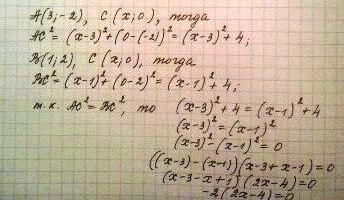 A(3;-2), C(x;0), тогда
AC² = (x-3)² + (0-(-2))² = (x-3)² + 4;
B(1;2), C(x;0), тогда
BC² = (x-1)² + (0-2)² = (x-1)² + 4;
т.к. AC² = BC², то (x-3)² + 4 = (x-1)² + 4
(x-3)² = (x-1)²
(x-3)² - (x-1)² = 0
((x-3)-(x-1))(x-3+x-1) = 0
(x-3-x+1)(2x-4) = 0
-2(2x-4) = 0